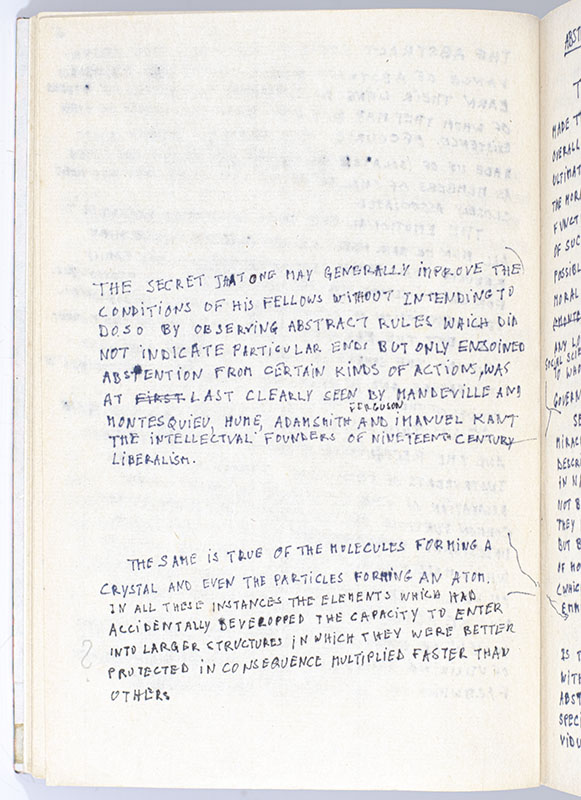 THE SECRET THAT ONE MAY GENERALLY IMPROVE THE
CONDITIONS OF HIS FELLOWS WITHOUT INTENDING TO
DO SO BY OBSERVING ABSTRACT RULES WHICH DID
NOT INDICATE PARTICULAR ENDS BUT ONLY ENJOINED
ABSTENTION FROM CERTAIN KINDS OF ACTIONS, WAS
AT FIRST LAST CLEARLY SEEN BY MANDEVILLE AND
FERGUSON
MONTESQUIEU, HUME, ADAM SMITH AND IMANUEL KANT
THE INTELLECTUAL FOUNDERS OF NINETEENTH CENTURY
LIBERALISM.
THE SAME IS TRUE OF THE MOLECULES FORMING A
CRYSTAL AND EVEN THE PARTICLES FORMING AN ATOM.
IN ALL THESE INSTANCES THE ELEMENTS WHICH HAD
ACCIDENTALLY DEVEROPPED THE CAPACITY TO ENTER
INTO LARGER STRUCTURES IN WHICH THEY WERE BETTER
PROTECTED IN CONSEQUENCE MULTIPLIED FASTER THAN
OTHERS
MADE T
OVERALL
ULTIMAT
THE MORA
FUNCT
OF SUC
POSSIBL
MORAL
ANY LO
SOCIAL SCIE
TO WHO
GOVERN
SE
MIRAC
DESCRI
IN NA
NOT B
THEY
BUT B
OF MO
(WHIC
EMA
IS T
WITH
ABST
SPECI
VIDU